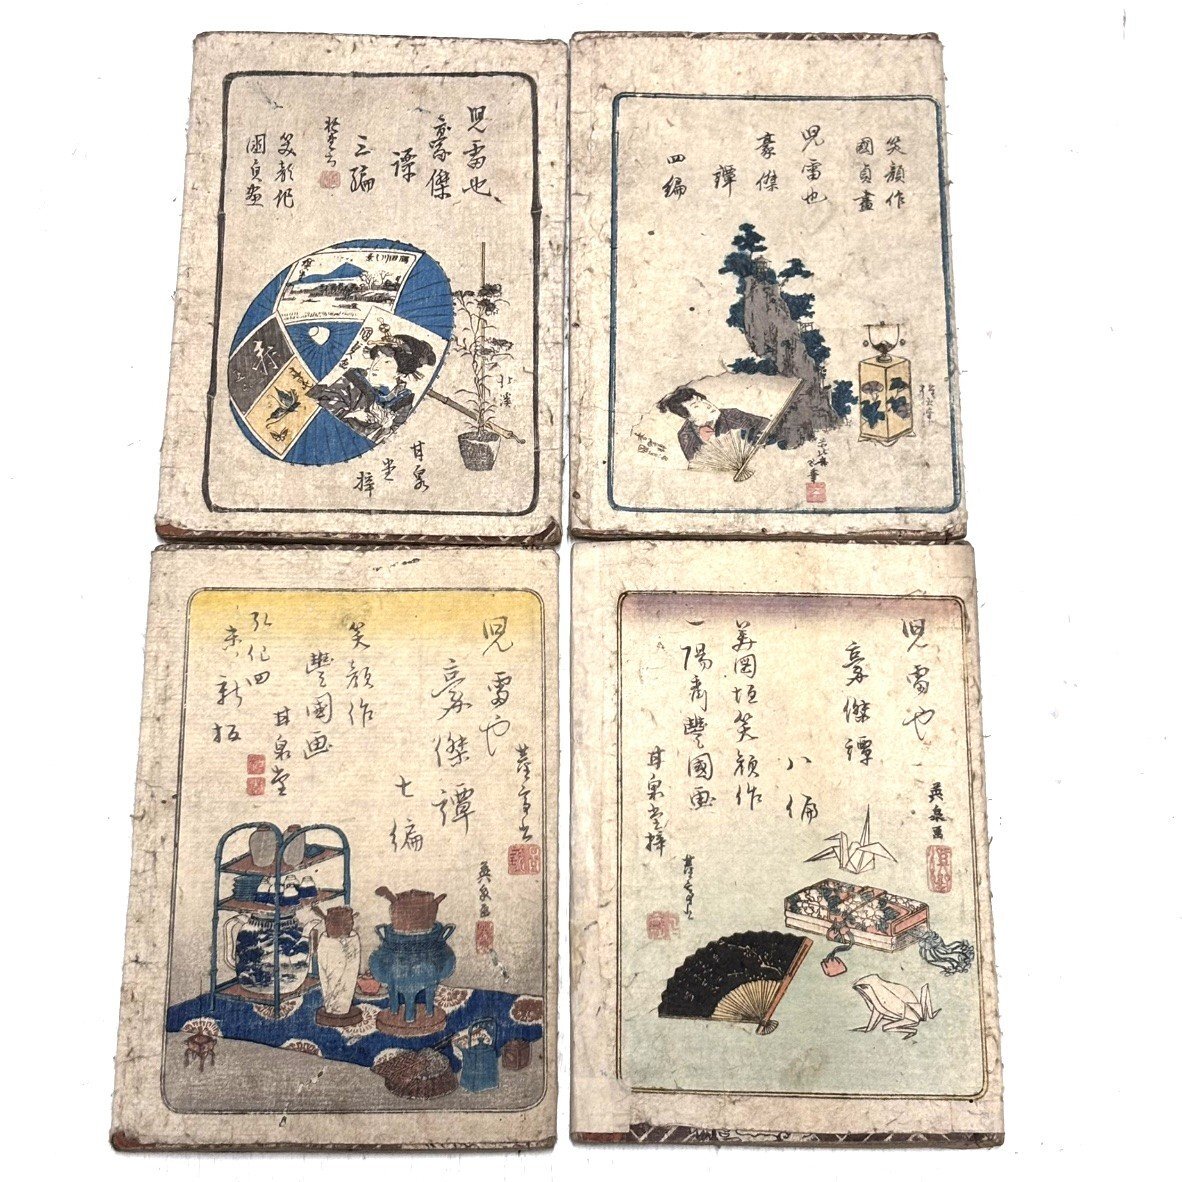 児雷也
豪傑
譚
三編
笑顔作
國貞画
甘泉
堂
梓
北渓
笑顔作
國貞畫
児雷也
豪傑
譚
四編
児雷也
豪傑譚
七編
笑顔作
豊國画
甘泉堂
弘化四
未
新板
英泉画
児雷也
豪傑譚
八編
美圖垣笑顔作
一陽斎豊國画
甘泉堂梓
英泉画